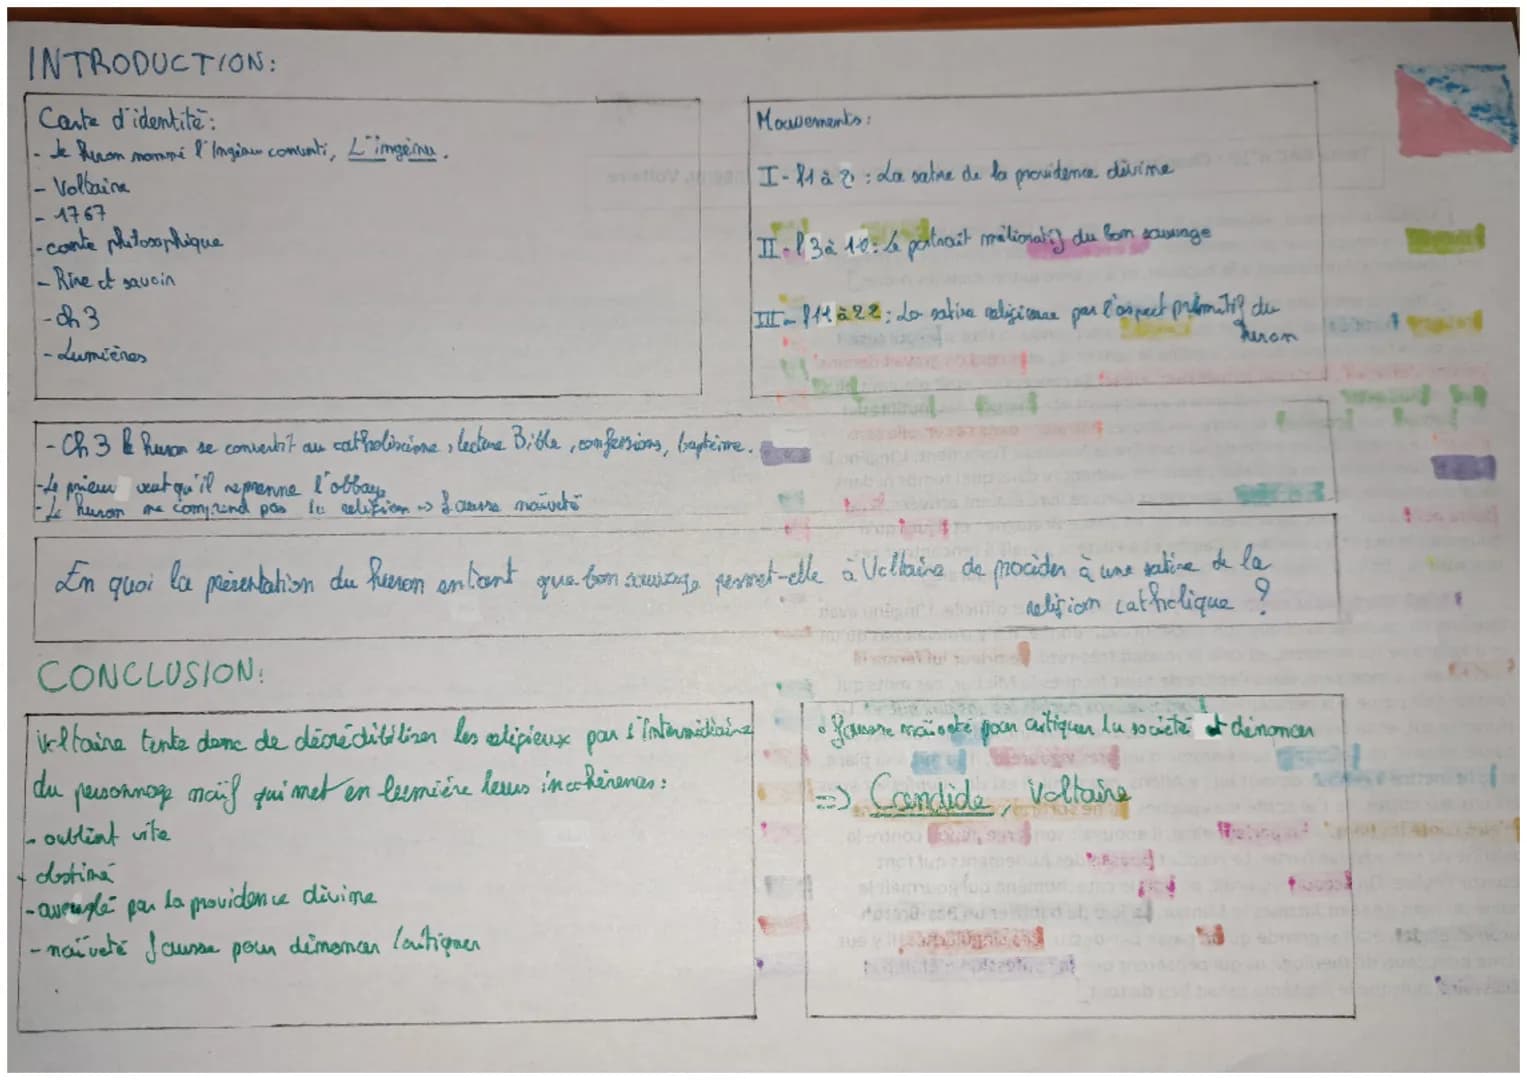 INTRODUCTION:
Carte d'identité:
- Le Huron nommé l'Ingénu converti, L'ingénu.
- Voltaire
- 1767
- conte philosophique
- Rire et savoir
- ch 3
- Lumières
Mouvements:
I- l1 à 2 : La satire de la providence divine
II- l3 à 10: Le portrait mélioratif du bon sauvage
III- l11 à 22 : La satire religieuse par l'aspect primitif du
huron
- Ch 3 le huron se convertit au catholiscisme, lecture Bible, confessions, baptême.
- Le prieur veut qu'il reprenne l'abbaye
- Le huron ne comprend pas la religion -> fausse naïveté
En quoi la présentation du huron entant que bon sauvage permet-elle à Voltaire de procéder à une satire de la
religion catholique ?
CONCLUSION:
Voltaire tente donc de décrédibiliser les religieux par l'intermédiaire
du personnage naïf qui met en lumière leurs incohérences:
- oublient vite
- obstiné
- aveuglé par la providence divine
- naïveté fausse pour dénoncer / critiquer
• fausse naïveté pour critiquer la société et dénoncer
==> Candide, Voltaire